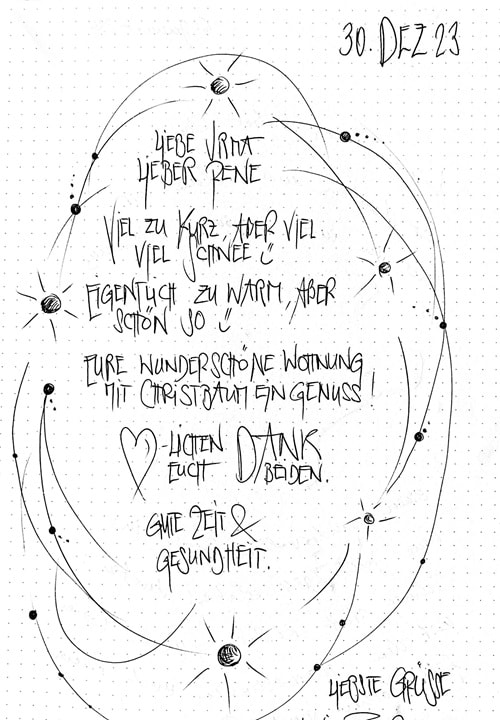 30. DEZ 23
LIEBE URMA
LIEBER RENE
VIEL ZU KURZ, ABER VIEL
VIEL SCHNEE ü
EIGENTLICH ZU WARM, ABER
SCHÖN SO ü
EURE WUNDERSCHÖNE WOHNUNG
MIT CHRISTBAUM EIN GENUSS!
♡-LICHEN DANK
EUCH BEIDEN.
GUTE ZEIT &
GESUNDHEIT.
LIEBSTE GRÜSSE